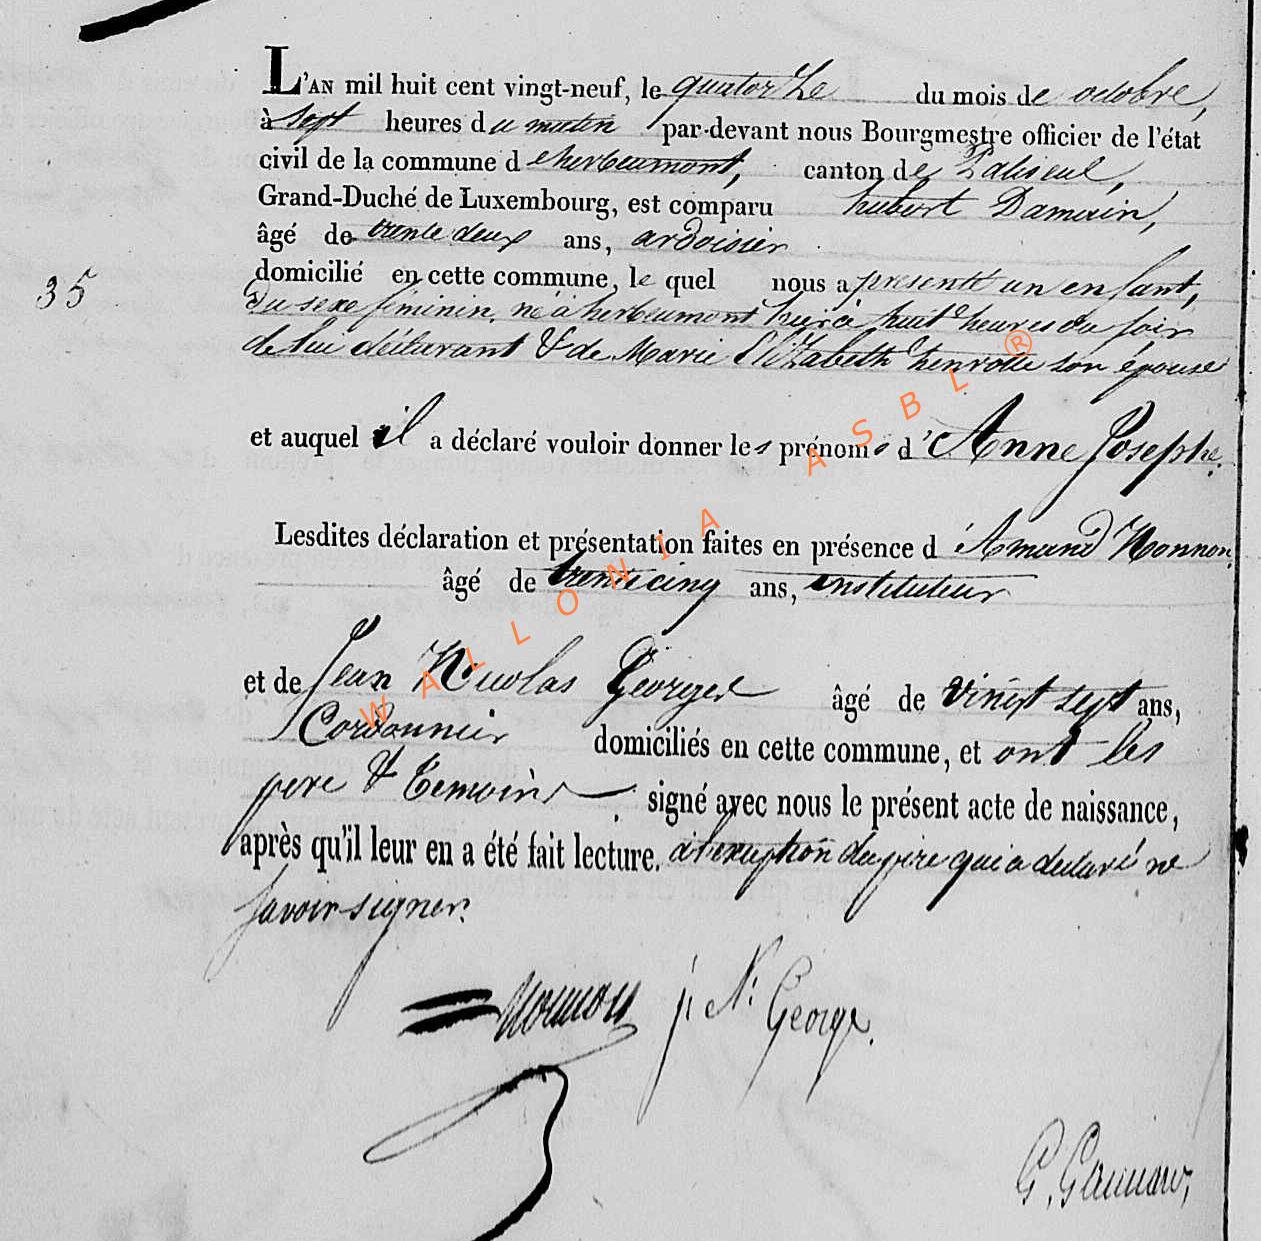 L'AN mil huit cent vingt-neuf, le quatorze du mois de octobre,
à sept heures du matin par-devant nous Bourgmestre officier de l'état
civil de la commune d'herbeumont, canton de Paliseul,
Grand-Duché de Luxembourg, est comparu hubert Damuin,
âgé de trente deux ans, ardoisier
domicilié en cette commune, le quel nous a presenté un enfant,
35
du sexe féminin, né à herbeumont hier à huit heures du soir
de lui déclarant & de Marie Elizabeth henrotte son épouse
et auquel il a déclaré vouloir donner les prénoms d'Anne Josephe.
Lesdites déclaration et présentation faites en présence d'Amand Nonnon,
âgé de trente cinq ans, instituteur
et de Jean Nicolas Georges âgé de vingt sept ans,
Cordonnier domiciliés en cette commune, et ont les
pere & temoins signé avec nous le présent acte de naissance,
après qu'il leur en a été fait lecture. à l'exception du pere qui a declaré ne
savoir signer.
Nonnon j. N: George.
G. Gannaw,
WALLONIA ASBL ®